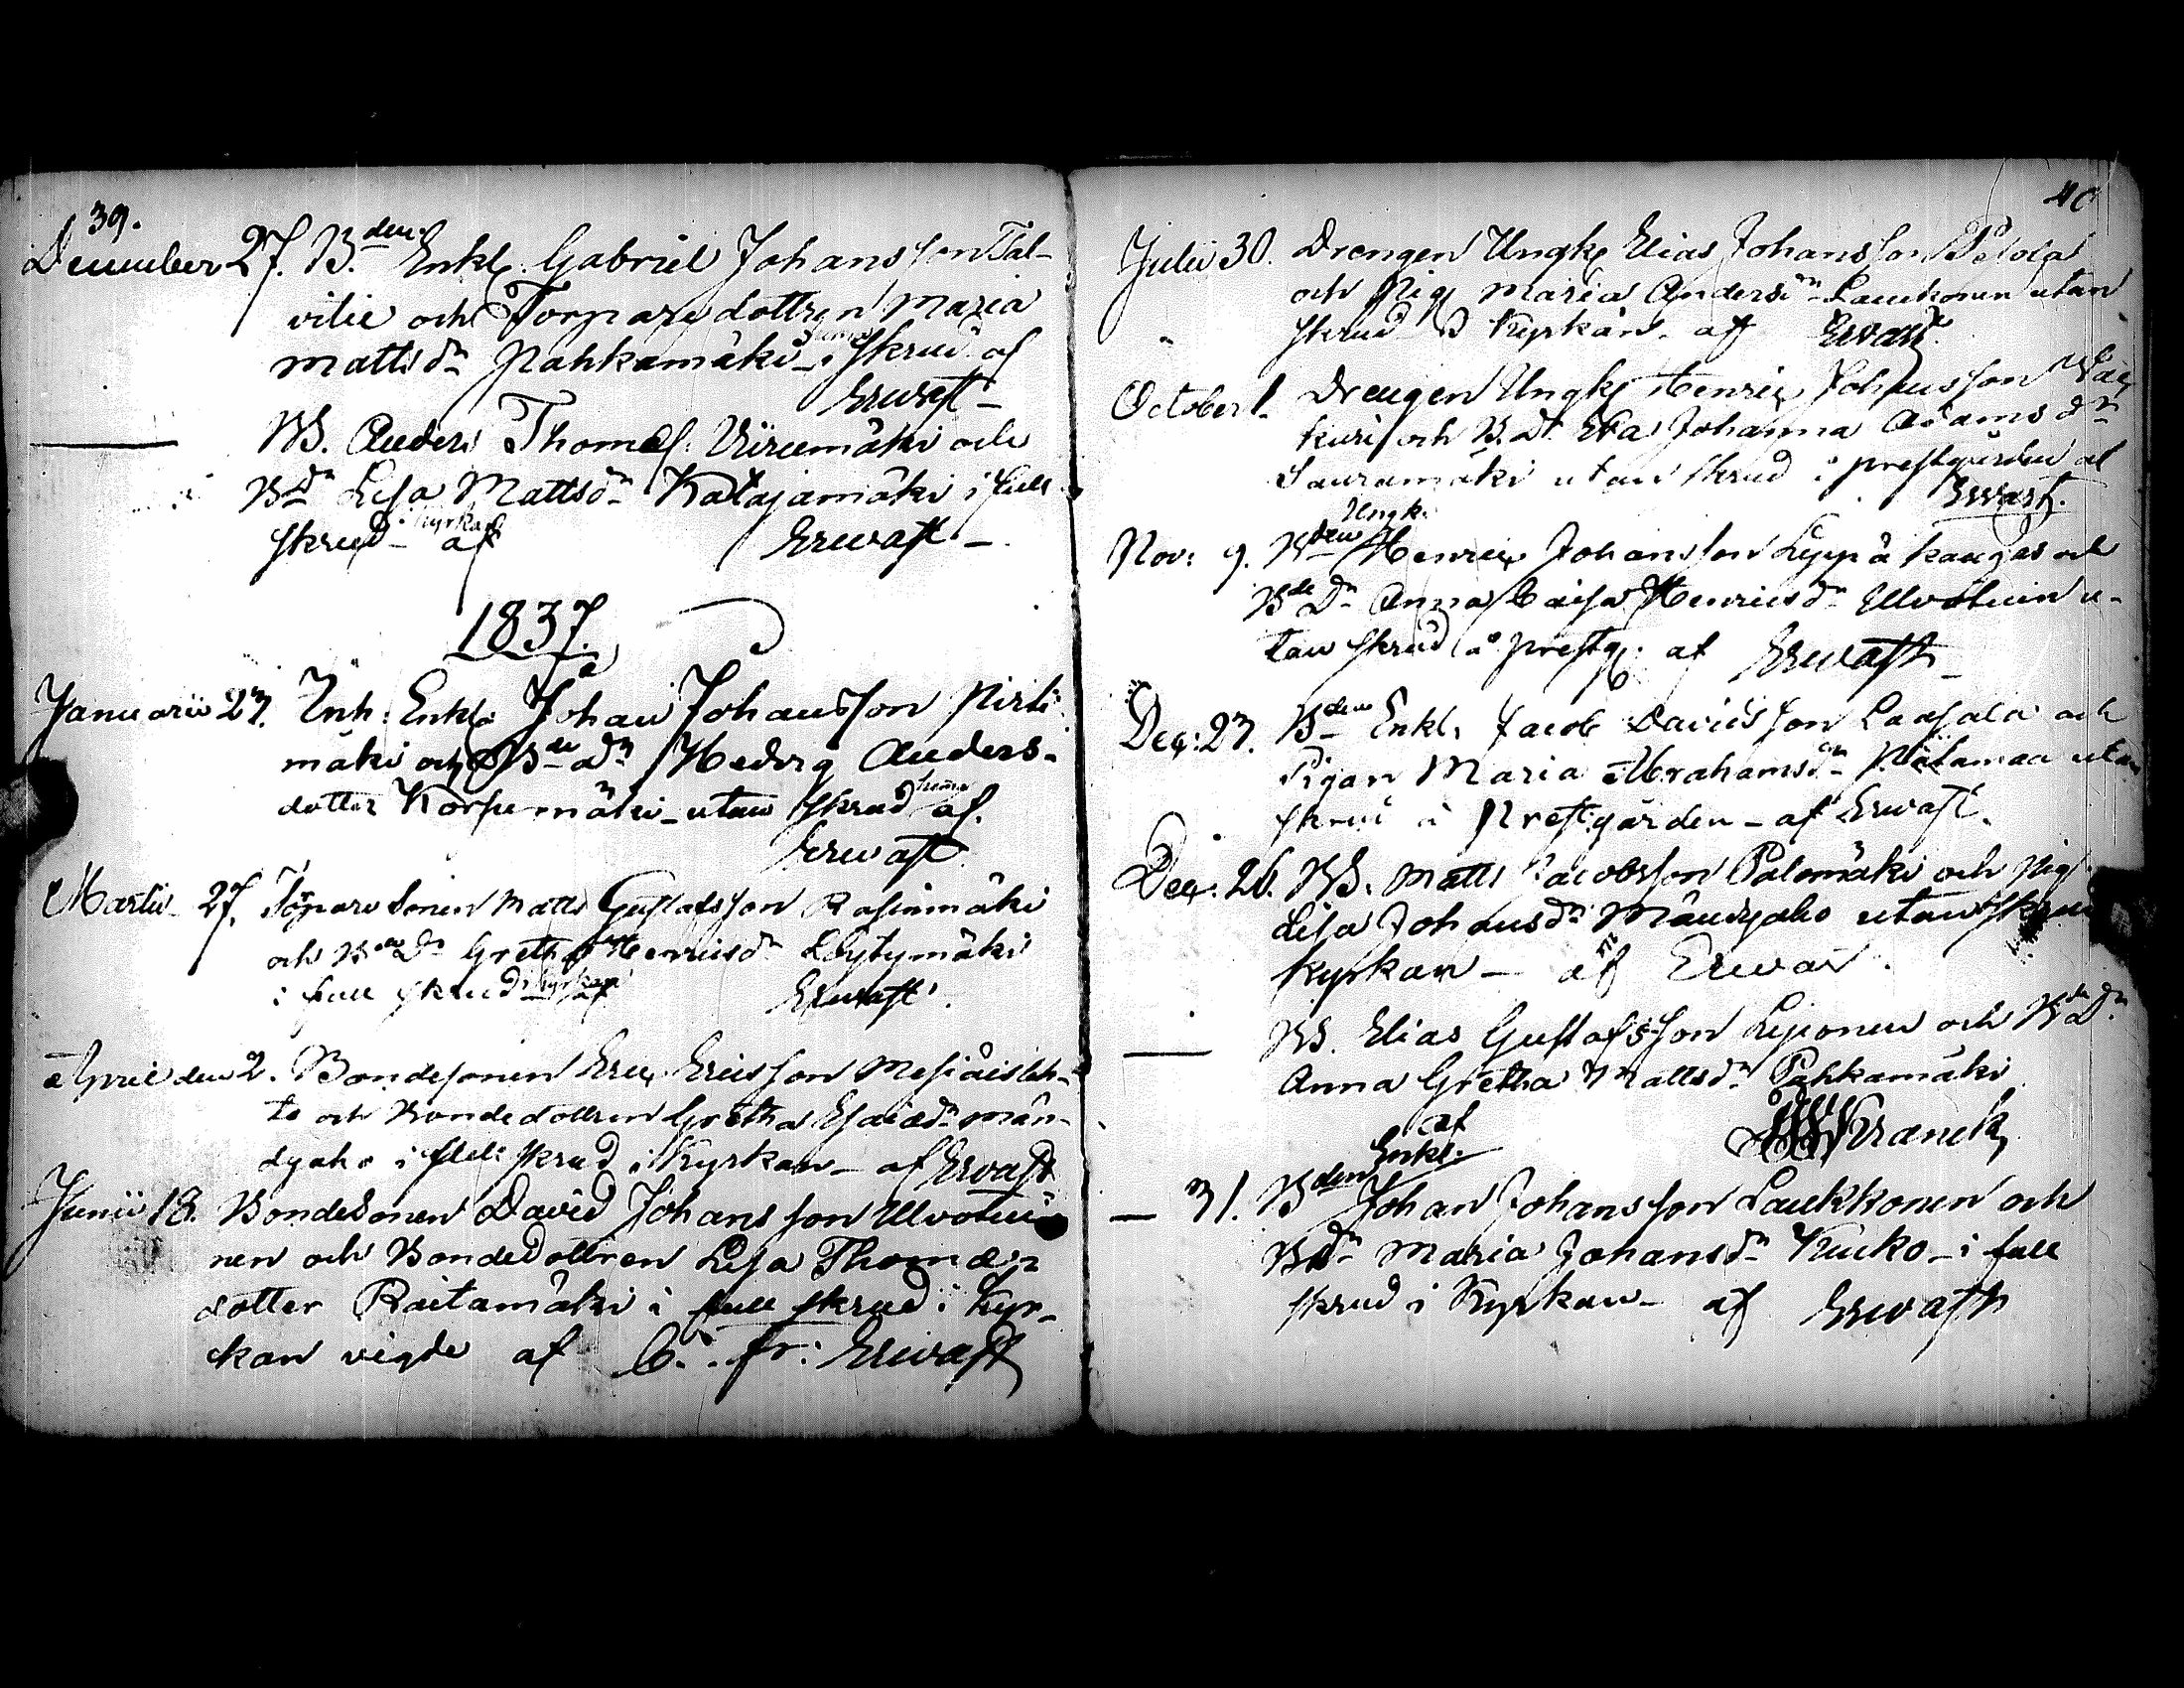 39.
December 27. B.den Enkl. Gabriel Johansson Tal-
vitie och Torpare dottren Maria
Mattsdr Pahkamäki i skrud af
Erwast
BS. Anders Thomæs. Viirumäki och
Bdr Lisa Mattsdr Katajamäki i full
skrud i Kyrkan af Erwast
1837.
Januarii 27. Inh: Enkl. Johan Johansson Pirti
mäki och Bde dr Hedvig Anders-
dotter Korpemäki utan skrud hema af.
Erwast
Martii 27. Torpare Sonen Matts Gustafsson Rasinmäki
och Bde Dr Gretha Henricsdr Löytymäki
i full skrud i Kyrkan af Erwast.
April den 2. Bondesonen Eric Ericsson Mesiäisleh-
to och Bondedottren Gretha Esaiædr Män-
dyaho i full skrud i Kyrkan af Erwast
Junii 18. Bondesonen David Johansson Ulvotui-
nen och Bondedottren Lisa Thomæ
dotter Raitamäki i full skrud i Kyr-
kan vigde af C. Fr: Erwast
40
Julii 30. Drengen Ungk. Elias Johansson Petola
och Pig. Maria Andersdr Laukonen utan
skrud i Kyrkan af Erwast.
October 1. Drengen Ungk. Henric Johansson
kuri och B. Dr. Eva Johanna Adamsdr
Sauramäki utan skrud i prestgården af
Erwast.
Ungk.
Nov: 9. Bden Henric Johansson Leppäkangas och
Bde Dr Anna Caisa Henricsdr Ulvotuin u-
tan skrud å prestg: af Erwast
Dec: 27. Bden Enkl. Jacob Davidsson Laasala och
Pigan Maria Abrahamsdr Pätämaa utan
skrud å Prestgården af Erwast.
Dec: 26. BS. Matts Jacobsson Palomäki och Pig.
Lisa Johansdr Mändyaho utan skrud
Kyrkan af Erwast.
BS. Elias Gustafsson Leponen och Bde Dr
Anna Gretha Mattsdr Pahkamäki
af Franck
Enkl.
31. Bden Johan Johansson Laukkonen och
Bdr Maria Johansdr Kuko i full
skrud i Kyrkan af Erwast